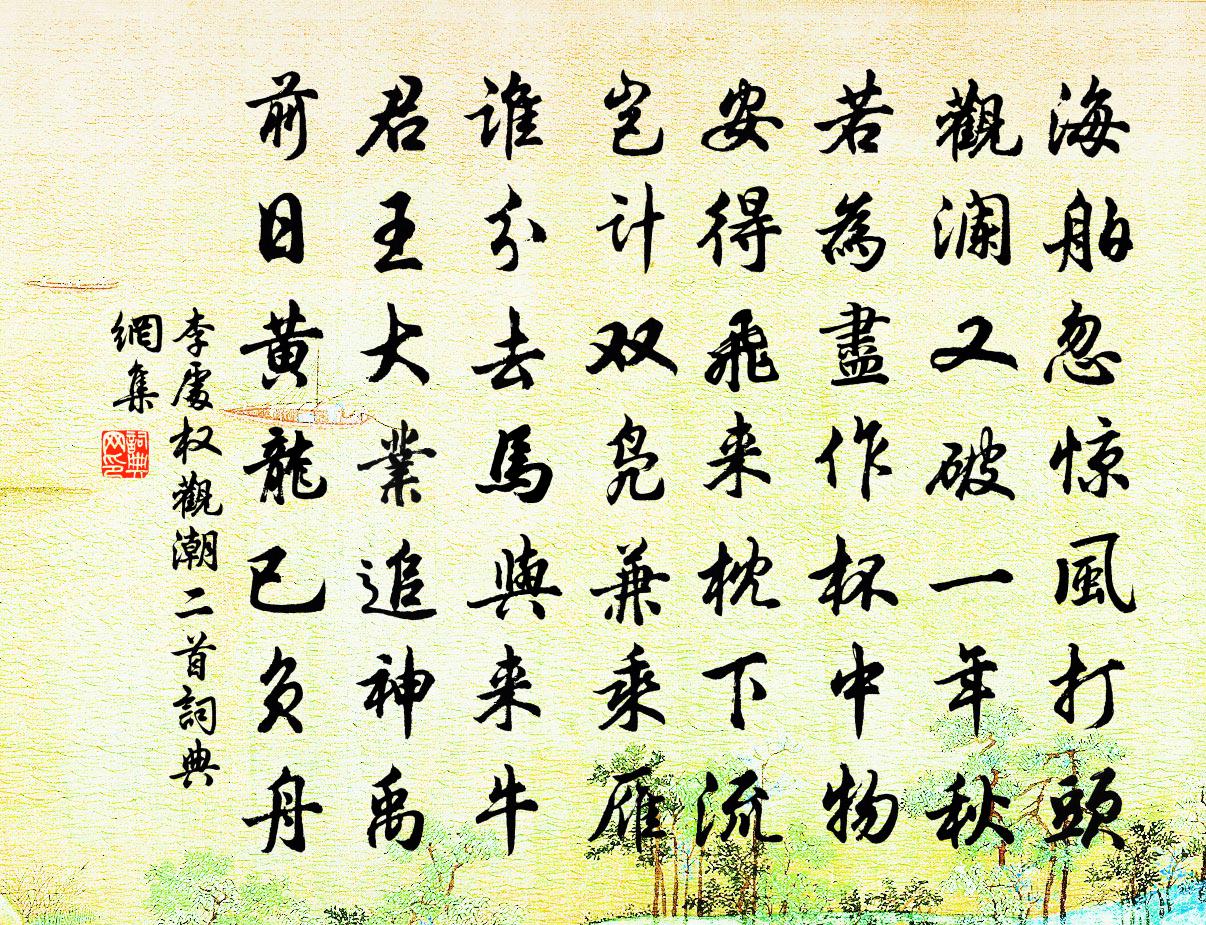 海舶忽惊風打頭
觀澜又破一年秋
若為盡作杯中物
安得飛来枕下流
岂计双凫兼乘雁
谁分去馬與来牛
君王大業追神禹
前日黄龍已负舟
李處权觀潮二首詞典
網集
詞典
网印